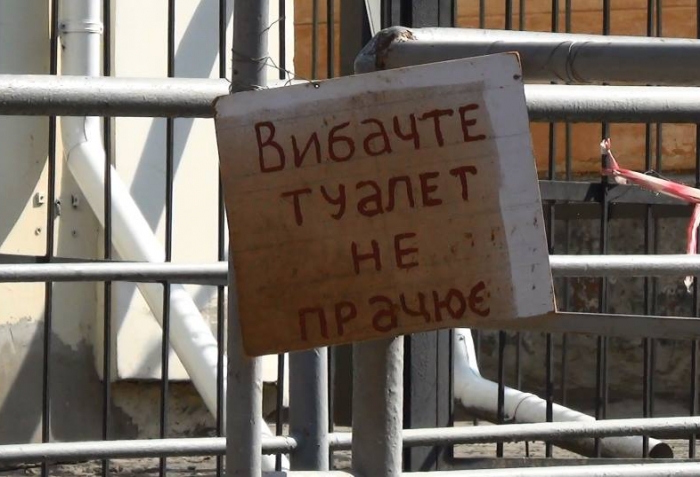 Вибачте
туалет
не
прачює